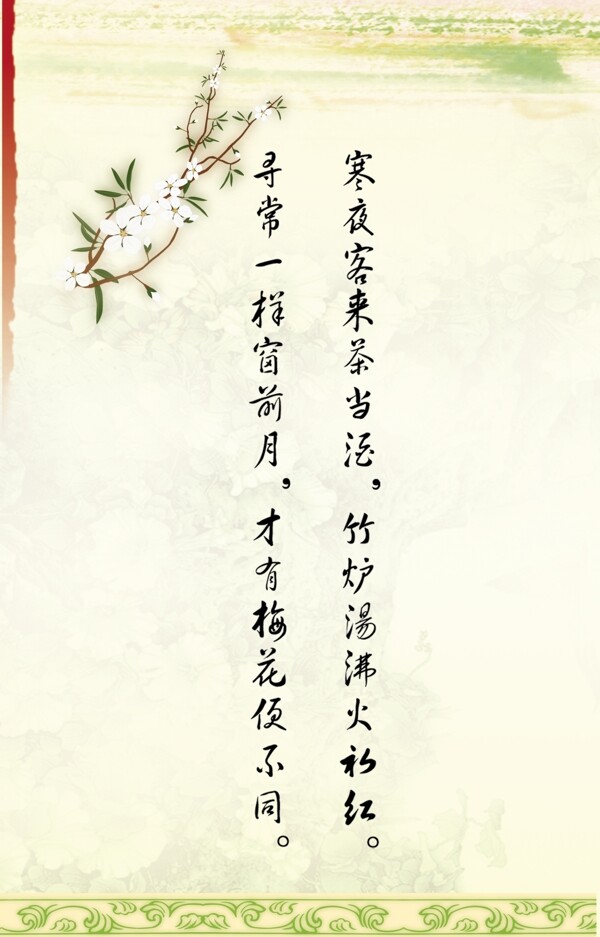 寒夜客来茶当酒，竹炉湯沸火初红。
寻常一样窗前月，才有梅花便不同。